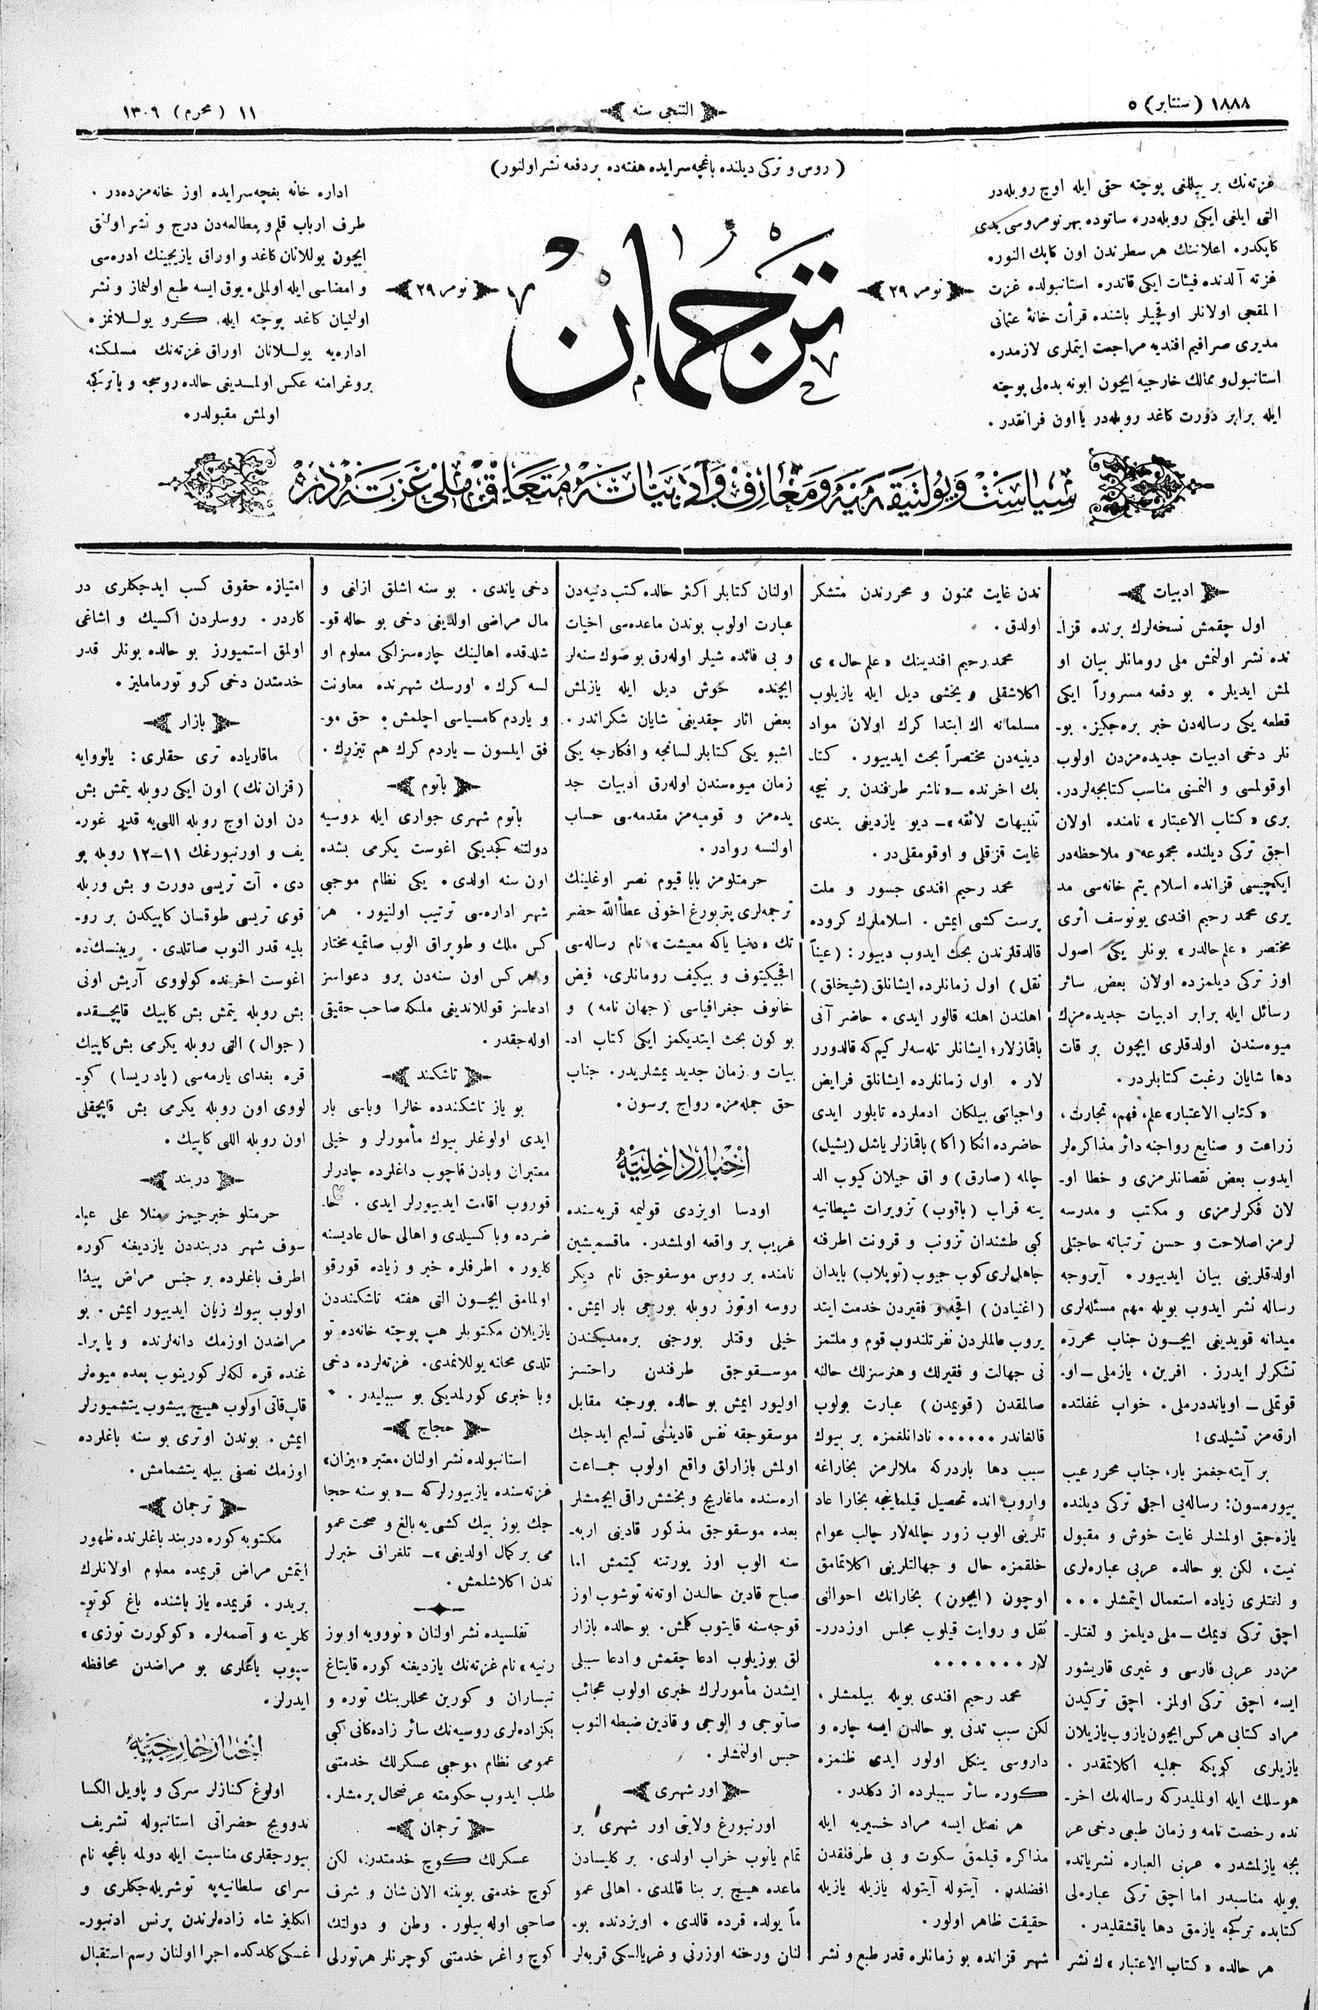 ١٨٨٨ (سنتابر) ٥
التنجى سنه
١١ (محرم) ١٣٠٦
(روس و تركى ديلنده باغچه سرايده هفته ده بر دفعه نشر اولنور)
غزته نك بر ييللغى پوچته حتى ايله اوچ روبله در
التى ايلغى ايكى روبله در، ساتوده بهر نومروسى يدى
كاپكدر، اعلاننك هر سطرندن اون كاپك النور.
غزته آلدنده فيئات ايكى قاتدر، استانبولده غزت
المقجى اولانلر اوقچيلر باشنده قرأت خانهٔ عثمانى
مديرى صرافيم افنديه مراجعت ايتملرى لازمدر،
استانبول و ممالك خارجيه ايچون ابونه بده لى پوچته
ايله برابر دورت كاغد روبله در يا اون فرانقدر.
نومر ٢٩
ترجمان
نومر ٢٩
اداره خانه بغچه سرايده اوز خانه مزده در.
طرف ارباب قلم و مطالعه دن درج و نشر اولنق
ايچون يوللانان كاغد و اوراق يازيجينك ادره سى
و امضاسى ايله اولملى، يوق ايسه طبع اولنماز و نشر
اولنميان كاغد پوچته ايله كرو يوللانمز،
اداره يه يوللانان اوراق غزته نك مسلكنه
بروغرامنه عكس اولمديغى حالده روسجه و يا تركچه
اولمش مقبولدر،
سياست و پولتيقه يه و معارف و ادبياته متعلق ملى غزته در
ادبيات
اول چقمش نسخه لرك برنده قزا-
نده نشر اولنمش ملى رومانلر بيان او
لمش ايديلر. بو دفعه مسروراً ايكى
قطعه يكى رساله دن خبر بره جكيز. بو-
نلر دخى ادبيات جديده مزدن اولوب
اوقولمسى و النمسى مناسب كتابجه لردر.
برى «كتاب الاعتبار» نامنده اولان
اچق تركى ديلنده مجموعه و ملاحظه در
ايكيچيسى قزانده اسلام يتم خانه سى مد
يرى محمد رحيم افندى يونوسف اثرى
مختصر «علم حالدر» بونلر يكى اصول
اوز تركى ديلمزده اولان بعض سائر
رسائل ايله برابر ادبيات جديده مزك
ميوه سندن اولدقلرى ايچون بر قات
دها شايان رغبت كتابلردر.
«كتاب الاعتبار» علم، فهم، تجارت،
زراعت و صنايع رواجنه دائر مذاكره لر
ايدوب بعض نقصانلرمزى و خطا او-
لان فكرلرمزى و مكتب و مدرسه
لرمز اصلاحت و حسن ترتباته حاجتلى
اولدقلرينى بيان ايديبور. آيروجه
رساله نشر ايدوب بويله مهم مسئله لرى
ميدانه قويديغى ايچون جناب محرره
تشكرلر ايدرز. افرين، يازملى – او-
قوتملى – اوياندرملى. خواب غفلتده
ارقه مز تشيلدى!
بر آيته جغمز بار، جناب محرر عيب
بيورمسون: رساله يى اجق تركى ديلنده
يازه جق اولمشلر غايت خوش و مقبول
نيت، لكن بو حالده عربى عباره لرى
و لغتلرى زياده استعمال ايتمشلر...
اچق تركى ديمك – ملى ديلمز و لغتلر-
مزدر عربى فارسى و غيرى قاريشور
ايسه اچق تركى اولمز. اچق تركيدن
مراد كتابى هر كس ايچون يازوب يازيلان
يازيلرى كوپكه جمليه اكلاتمقدر.
هوسلك ايله اولمليدركه رساله نك اخر-
نده رخصت نامه و زمان طبعى دخى عر
بجه يازلمشدر. عربى العباره نشرياتده
بويله مناسبدر اما اچق تركى عباره لى
كتابده تركجه يازمق دها ياقشقليدر.
هر حالده «كتاب الاعتبار» ك نشر
ندن غايت ممنون و محررندن متشكر
اولدق.
محمد رحيم افندينك «علم حال» ى
اكلاشقلى و يخشى ديل ايله يازيلوب
مسلمانه اك ابتدا كرك اولان مواد
دينيه دن مختصراً بحث ايديبور. كتا-
بك اخرنده – «ناشر طرفندن بر نيچه
تنبيهات لائقه» – ديو يازديغى بندى
غايت قزقلى و اوقومقلى در.
محمد رحيم افندى جسور و ملت
پرست كشى ايمش. اسلاملرك كروده
قالدقلرندن بحث ايدوب ديبور: (عيناً
نقل) اول زمانلرده ايشانلق (شيخلق)
اهلندن اهلنه قالور ايدى. حاضر آنى
باقمازلار؛ ايشانلر تله سه لر كيم كه قالدورر
لار. اول زمانلرده ايشانلق فرايض
واجباتنى بيلكان ادملرده تابلور ايدى
حاضرده انكا (اكا) باقمازلر ياشل (يشيل)
چالمه (صارق) و اق جيلان كيوب الد
ينه قراب (باقوب) تزويرات شيطانيه
كبى طشندان تزونب و قرونت اطرفنه
جاهل لرى كوب جيوب (توپلاب) بايدان
(اغنيادن) اقچه و فقيردن خدمت ايتد
يروب عالملردن نفرتلندوب قوم و ملتمز
نى جهالت و فقيرلك و هنرسزلك حالنه
صالمقدن (قويمدن) عبارت بولوب
قالغاندر...... نادانلغمزه بر بيوك
سبب دها باردركه ملالرمز بخاراغه
واروب انده تحصيل قيلماينجه بخارا عاد
تلرينى الوب زور چالمه لار چالب عوام
خلقمزه حال و جهالتلرينى اكلاتمامق
اوچون (ايچون) بخارانك احوالنى
نقل و روايت قيلوب مجلس اوزدرر-
لار.......
محمد رحيم افندى بويله بيلمشلر،
لكن سبب تدنى بو حالدن ايسه چاره و
داروسى يينكل اولور ايدى ظنمزه
كوره سائر سببلرده از دكلدر.
هر نصل ايسه مراد خيريه ايله
مذاكره قيلمق سكوت و بى طرفلقدن
افضلدر. آيتوله آيتوله يازيله يازيله
حقيقت ظاهر اولور.
شهر قزانده بو زمانلره قدر طبع و نشر
اولنان كتابلر اكثر حالده كتب دنيه دن
عبارت اولوب بوندن ماعده سى اخيات
و بى فائده شيلر اوله رق بو صوك سنه لر
ايچنده خوش ديل ايله يازلمش
بعض اثار چقديغى شايان شكراندر.
اشبو يكى كتابلر لسانجه و افكارجه يكى
زمان ميوه سندن اوله رق ادبيات جد
يده مز و قوميه مز مقدمه سى حساب
اولنسه روادر.
حرمتلومز بابا قيوم نصر اوغلينك
ترجمه لرى پتربورغ اخونى عطأالله حضر
تك «دنيا ياكه معيشت» نام رساله سى
اقجيكيتوف و بيكيف رومانلرى، فيض
خانوف جغرافياسى (جهان نامه) و
بو كون بحث ايتديكمز ايكى كتاب اد-
بيات و زمان جديد يمشلريدر. جناب
حق جمله مزه رواج برسون.
اخبار داخليه
اودسا اويزدى قوليمه قريه سنده
غريب بر واقعه اولمشدر. ماقسميشين
نامنده بر روس موسقوجق نام ديكر
روسه اوتوز روبله بورجى بار ايمش.
خيلى وقتلر بورجنى بره مديكندن
موسقوجق طرفندن راحتسز
اوليور ايمش بو حالده بورجنه مقابل
موسقوجقه نفس قادينى تسليم ايدجك
اولمش بازارلق واقع اولوب جماعت
اره سنده ماغاريچ و بخشش راقى ايچمشلر
بعده موسقوجق مذكور قادينى اربه-
سنه الوب اوز يورتنه كيتمش اما
صباح قادين حالندن اوته نه توشوب اوز
قوجه سنه قايتوب كلمش. بو حالده بازار
لق بوزيلوب ادعا چقمش و ادعا سببلى
ايشدن مأمورلرك خبرى اولوب عجائب
صاتوجى و الوجى و قادين ضبطه النوب
حبس اولنمشلر.
اور شهرى
اورنبورغ ولايتى اور شهرى بر
تمام يانوب خراب اولدى. بر كليسادن
ماعده هيچ بر بنا قالمدى. اهالى عمو
ماً يولده قرده قالدى. اويزدنده بو-
لنان ورخنه اوزرنى و غربالسكى قريه لر
دخى ياندى. بو سنه اشلق ازانمى و
مال مراضى اولديغى دخى بو حاله قو-
شلدقده اهالينك چاره سزلكى معلوم او
لسه كرك. اورسك شهرنده معاونت
و ياردم كامسياسى اچلمش. حق مو-
فق ايلسون – ياردم كرك هم تيزرك.
باتوم
باتوم شهرى جوارى ايله روسيه
دولتنه كچديكى اغوست يكرمى بشده
اون سنه اولدى. يكى نظام موجبى
شهر اداره سى ترتيب اولنيور. هر
كس ملك و طوپراق الوب صاتميه مختار
و هر كس اون سنه دن برو دعواسز
ادعاسز قوللانديغى ملككه صاحب حقيقى
اوله جقدر.
تاشكند
بو ياز تاشكندده خالرا وباسى بار
ايدى اولوغلر بيوك مأمورلر و خيلى
معتبران وبادن قاچوب داغلرده چادرلر
قوروب اقامت ايديبورلر ايدى. حا-
ضرده وبا كسيلدى و اهالى حال عاديسنه
كليور. اطرفلره خبر و زياده قورقو
اولمامق ايچون التى هفته تاشكنددن
يازيلان مكتوبلر هپ پوچته خانه ده تو
تلدى محلنه يوللانمدى. غزته لرده دخى
وبا خبرى كورلمديكى بو سببليدر.
حجاج
استانبولده نشر اولنان معتبر «ميزان»
غزته سنده يازيبورلركه – «بو سنه حجا
جك يوز بيك كشى يه بالغ و صحت عمو
مى بر كمال اولديغى» – تلغراف خبرلر
ندن اكلاشلمش.
تفليسده نشر اولنان «نوويه اوبوز
رنيه» نام غزته نك يازديغنه كوره قايتاغ
تبساران و كورين محللرينك توره و
بكزاده لرى روسيه نك سائر زاده كانى كبى
عمومى نظام موجبى عسكرلك خدمتنى
طلب ايدوب حكومته عرضحال برمشلر.
ترجمان
عسكرلك كوچ خدمتدر، لكن
كوچ خدمتى بويننه الان شان و شرف
صاحبى اوله بيلور. وطن و دولتك
كوچ و اغر خدمتنى كوچرنلر هر تورلى
امتيازه حقوق كسب ايدجكلرى در
كاردر. روسلردن اكسيك و اشاغى
اولمق استميورز بو حالده بونلر قدر
خدمتدن دخى كرو تورمامليز.
بازار
ماقارياده ترى حقلرى: يانووايه
(قزان نك) اون ايكى روبله يتمش بش
دن اون اوچ روبله اللى يه قدر غور-
يف و اورنبورغك ١١–١٢ روبله يو
دى. آت تريسى دورت و بش وربله
قوى تريسى طوقسان كاپيكدن بر رو-
بليه قدر النوب صاتلدى. ريبنسك ده
اغوست اخرنده كولووى آريش اونى
بش روبله يتمش بش كاپيك قاپچقده
(جوال) التى روبله يكرمى بش كاپيك
قره بغداى يارمه سى (يادريسا) كو-
لووى اون روبله يكرمى بش قاپچقلى
اون روبله اللى كاپيك.
دربند
حرمتلو خبرجيمز منلا على عبا-
سوف شهر دربنددن يازديغنه كوره
اطرف باغلرده بر جنس مراض پيدا
اولوب بيوك زيان ايديبور ايمش. بو
مراضدن اوزمك دانه لرنده و ياپرا-
غنده قره لكه لر كورينوب بعده ميوه لر
قاپ قاتى اولوب هيچ پيشوب يتشميورلر
ايمش. بوندن اوترى بو سنه باغلرده
اوزمك نصفى بيله يتشمامش.
ترجمان
مكتوبه كوره دربند باغلرنده ظهور
ايتمش مراض قريمده معلوم اولانلرك
بريدر. قريمده ياز باشنده باغ كوتو-
كلرينه و آصمه لره «كوكورت توزى»
سپوب باغلرى بو مراضدن محافظه
ايدرلر.
اخبار خارجيه
اولوغ كنازلر سركى و پاويل الكسا
ندوويچ حضراتى استانبوله تشريف
بيورجقلرى مناسبت ايله دولمه باغچه نام
سراى سلطانيه يه توشريله جكلرى و
انكليز شاه زاده لرندن پرنس ادنبور-
غسكى كلدكده اجرا اولنان رسم استقبال